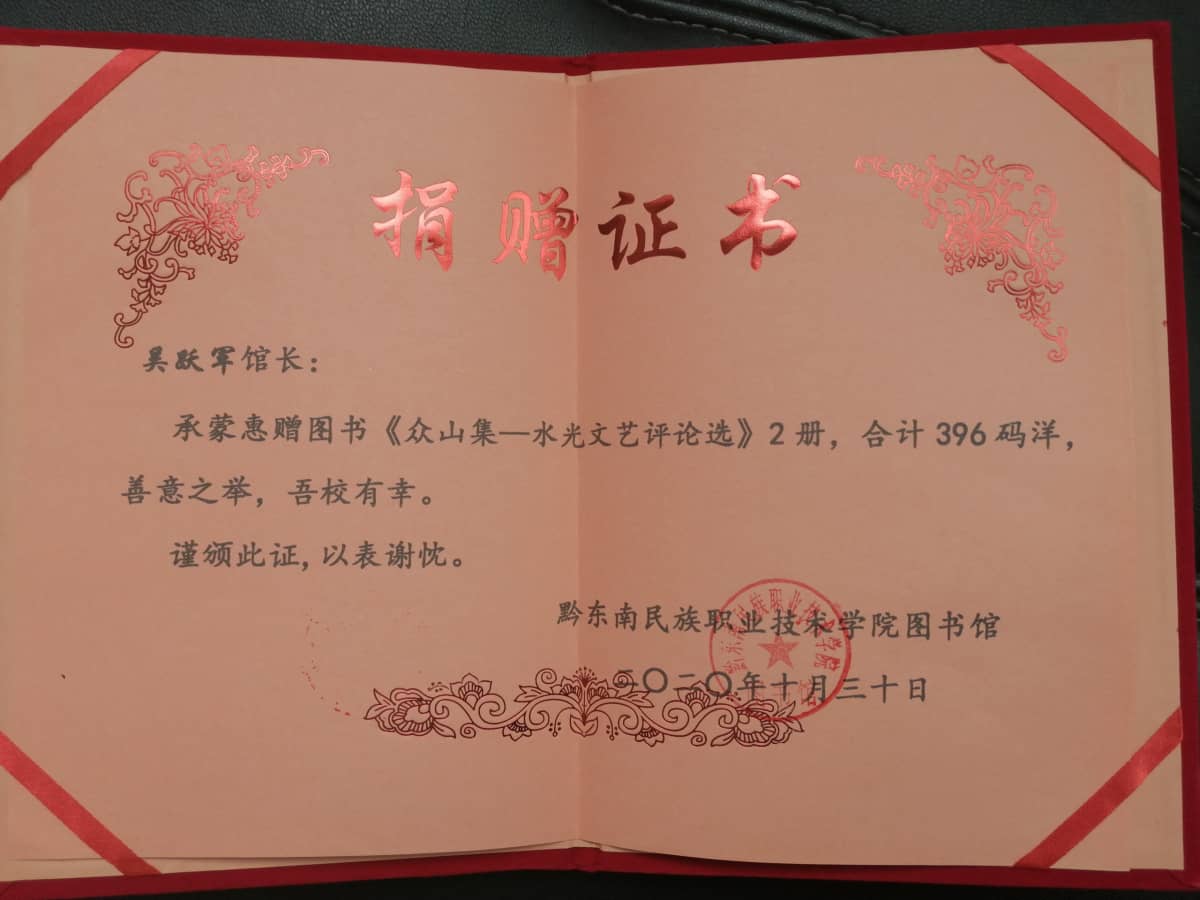 捐赠证书
吴跃军馆长：
承蒙惠赠图书《众山集—水光文艺评论选》2册，合计396码洋，
善意之举，吾校有幸。
谨颁此证,以表谢忱。
黔东南民族职业技术学院图书馆
二〇二〇年十月三十日